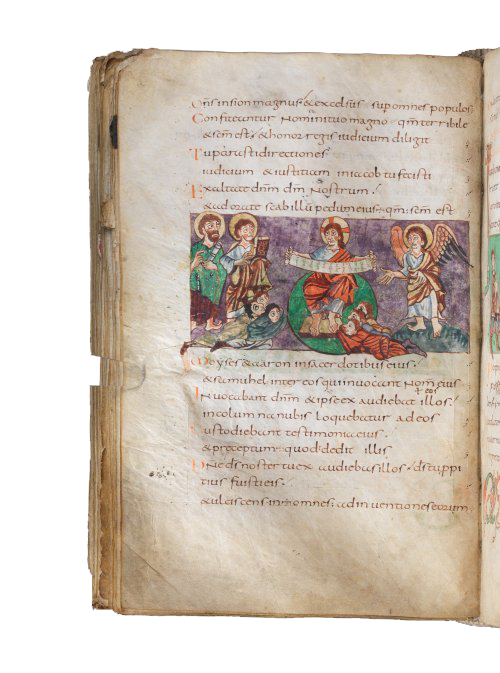 Dns insion magnus & excelsus super omnes populos
Confiteantur nomini tuo magno qm terribile
& scm est & honor regis iudicium diligit
Tu parasti directiones
iudicium & iustitiam in iacob tu fecisti
Exaltate dnm dm nostrum
& adorate scabillu pedum eius qm scm est
Moyses & aaron in sacerdotibus eius
& samuhel inter eos qui inuocant nomen eius
Inuocabant dnm & ipse exaudiebat illos
in columna nubis loquebatur ad eos
Custodiebant testimonia eius
& preceptum quod dedit illis
Dne ds noster tu exaudiebas illos ds tu ppi
tius fuisti eis
& ulciscens in omnes adinuentiones eorum